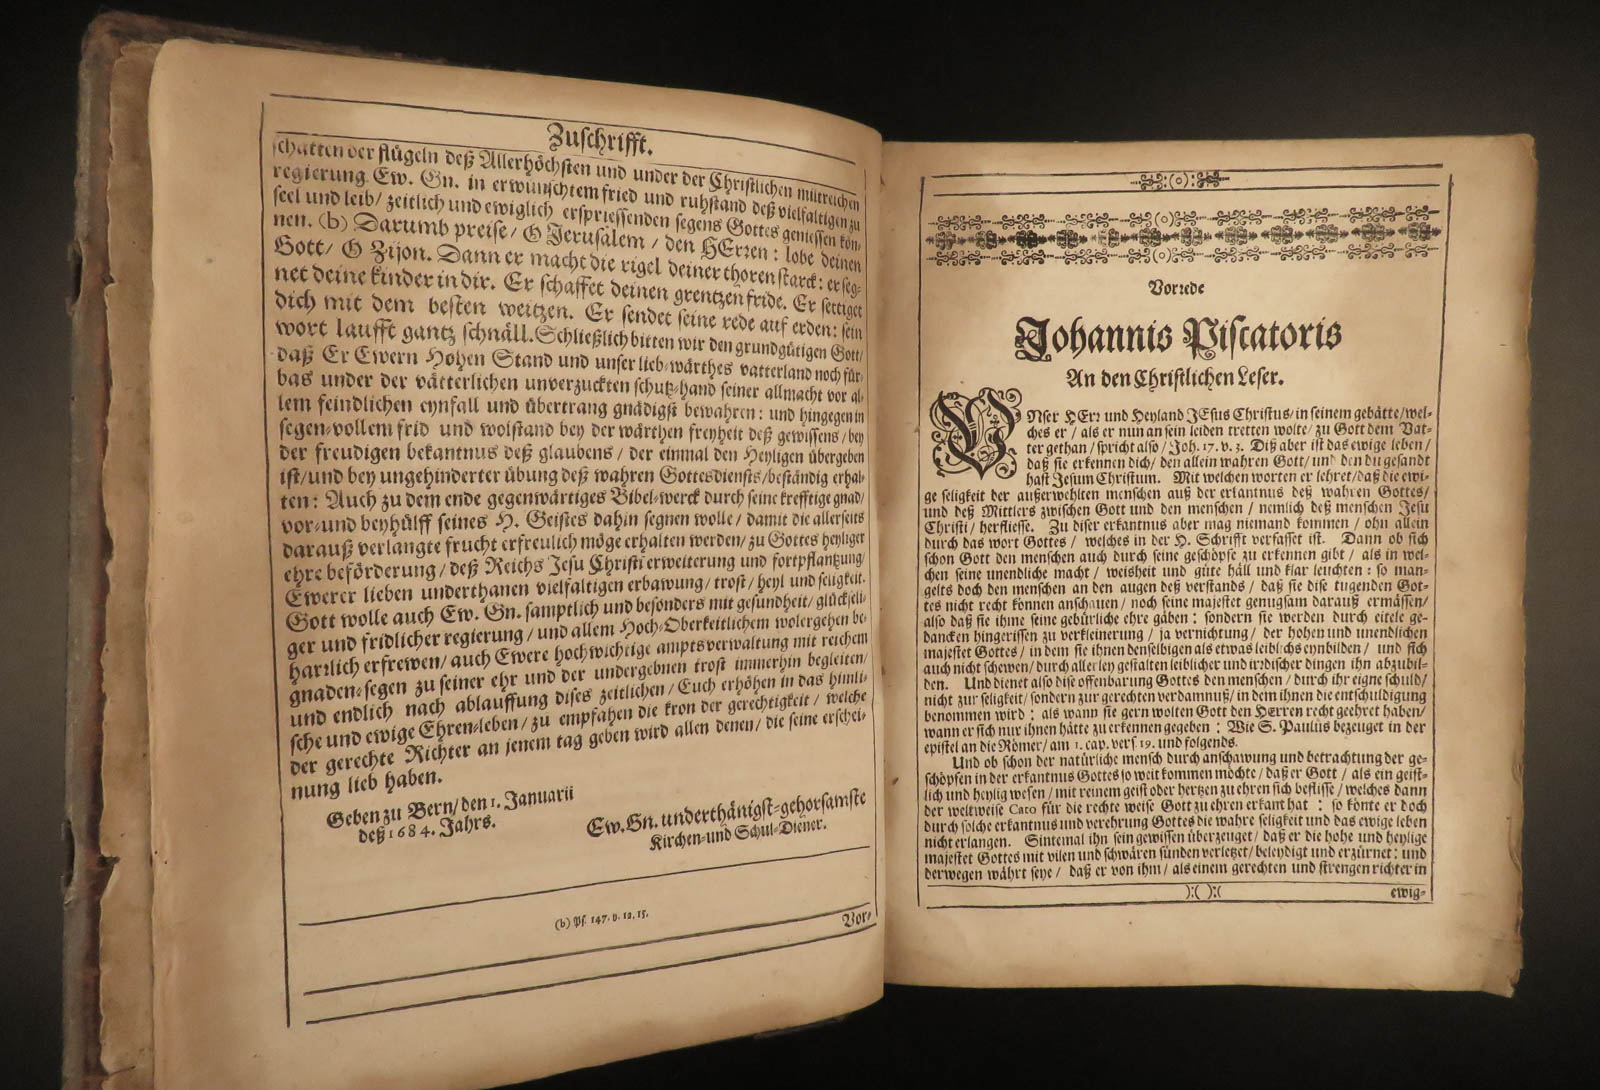 Zuschrifft.
schatten der flügeln deß Allerhöchsten und under der Christlichen mitreichen
regierung Ew. Gn. in erwünschtem fried und ruhstand deß vielfaltigen zu
seel und leib/ zeitlich und ewiglich erspriessenden segens Gottes geniessen kön,
nen. (b) Darumb preise/ O Jerusalem/ den HErren: lobe deinen
Gott/ O Zijon. Dann er macht die rigel deiner thoren starck: er seg-
net deine kinder in dir. Er schaffet deinen grentzen fride. Er settiget
dich mit dem besten weitzen. Er sendet seine rede auf erden: sein
wort laufft gantz schnäll. Schließlich bitten wir den grundgütigen Gott/
daß Er Ewern Hohen Stand und unser lieb-wärthes vatterland noch für-
bas under der vätterlichen unverzuckten schutz-hand seiner allmacht vor al-
lem feindlichen eynfall und übertrang gnädigst bewahren: und hingegen in
segen-vollem frid und wolstand bey der wärthen freyheit deß gewissens/ bey
der freudigen bekantnus deß glaubens/ der einmal den Heyligen übergeben
ist/ und bey ungehinderter übung deß wahren Gottesdiensts/ beständig erhal-
ten: Auch zu dem ende gegenwärtiges Bibel-werck durch seine krefftige gnad/
vor-und beyhülff seines H. Geistes dahin segnen wolle/ damit die allerseits
darauß verlangte frucht erfreulich möge erhalten werden/ zu Gottes heyliger
ehre beförderung/ deß Reichs Jesu Christi erweiterung und fortpflantzung/
Ewerer lieben underthanen vielfaltigen erbawung/ trost/ heyl und seligkeit.
Gott wolle auch Ew. Gn. samptlich und besonders mit gesundheit/ glückseli-
ger und fridlicher regierung/ und allem Hoch-Oberkeitlichem wolergehen be-
hartlich erfrewen/ auch Ewere hochwichtige amptsverwaltung mit reichem
gnaden-segen zu seiner ehr und der undergebnen trost immerhin begleiten/
und endlich nach ablauffung dises zeitlichen/ Euch erhöhen in das himli-
sche und ewige Ehren-leben/ zu empfahen die kron der gerechtigkeit/ welche
der gerechte Richter an jenem tag geben wird allen denen/ die seine erschei-
nung lieb haben.
Geben zu Bern/ den 1. Januarii
deß 1684. Jahrs.
Ew. Gn. underthänigst-gehorsamste
Kirchen-und Schul-Diener.
(b) Ps. 147. v. 12, 15.
Vor-
Vorrede
Johannis Piscatoris
An den Christlichen Leser.
UNser HErr und Heyland JEsus Christus/ in seinem gebätte/ wel-
ches er/ als er nun an sein leiden tretten wolte/ zu Gott dem Vat-
ter gethan/ spricht also/ Joh. 17. v. 3. Diß aber ist das ewige leben/
daß sie erkennen dich/ den allein wahren Gott/ und den du gesandt
hast Jesum Christum. Mit welchen worten er lehret/ daß die ewi-
ge seligkeit der außerwehlten menschen auß der erkantnus deß wahren Gottes/
und deß Mittlers zwischen Gott und den menschen/ nemlich deß menschen Jesu
Christi/ herfliesse. Zu diser erkantnus aber mag niemand kommen/ ohn allein
durch das wort Gottes/ welches in der H. Schrifft verfasset ist. Dann ob sich
schon Gott den menschen auch durch seine geschöpfe zu erkennen gibt/ als in wel-
chen seine unendliche macht/ weisheit und güte häll und klar leuchten: so man-
gelts doch den menschen an den augen deß verstands/ daß sie dise tugenden Got-
tes nicht recht können anschauen/ noch seine majestet genugsam darauß ermässen/
also daß sie ihme seine gebürliche ehre gäben: sondern sie werden durch eitele ge-
dancken hingerissen zu verkleinerung/ ja vernichtung/ der hohen und unendlichen
majestet Gottes/ in dem sie ihnen denselbigen als etwas leiblichs eynbilden/ und sich
auch nicht schewen/ durch allerley gestalten leiblicher und irdischer dingen ihn abzubil-
den. Und dienet also dise offenbarung Gottes den menschen/ durch ihr eigne schuld/
nicht zur seligkeit/ sondern zur gerechten verdamnuß/ in dem ihnen die entschuldigung
benommen wird: als wann sie gern wolten Gott den HErren recht geehret haben/
wann er sich nur ihnen hätte zu erkennen gegeben: Wie S. Paulus bezeuget in der
epistel an die Römer/ am 1. cap. vers 19. und folgends.
Und ob schon der natürliche mensch durch anschawung und betrachtung der ge-
schöpfen in der erkantnus Gottes so weit kommen möchte/ daß er Gott/ als ein geist-
lich und heylig wesen/ mit reinem geist oder hertzen zu ehren sich beflisse/ welches dann
der weltweise Cato für die rechte weise Gott zu ehren erkant hat: so könte er doch
durch solche erkantnus und verehrung Gottes die wahre seligkeit und das ewige leben
nicht erlangen. Sintemal ihn sein gewissen überzeuget/ daß er die hohe und heylige
majestet Gottes mit vilen und schwären sünden verletzet/ beleydigt und erzürnet: und
derwegen währt seye/ daß er von ihm/ als einem gerechten und strengen richter in
):( ):(
ewig-